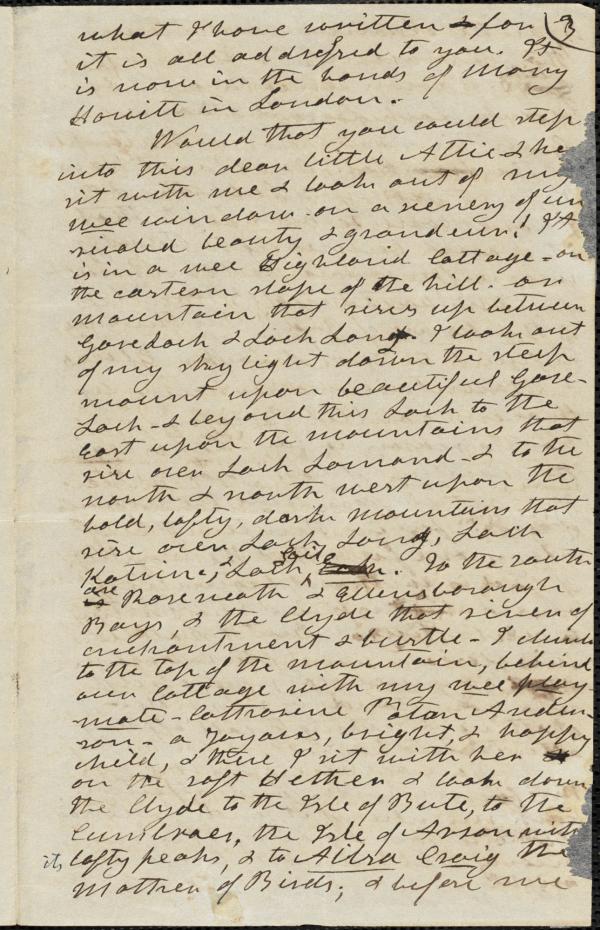 what I have written & for 3
it is all addressed to you. It
is now in the hands of Mary
Howitt in London.
Would that you could step
into this dear little Attic & he
sit with me & look out of my
wee window on a scenery of un
rivaled beauty & grandeur! It
is in a wee Highland Cottage - on
the eastern slope of the hill - or
mountain that rises up between
Gareloch & Loch Long. I look out
of my sky light down the steep
mount upon beautiful Gare-
Loch - & beyond this Loch to the
East upon the mountains that
rise over Loch Lomond - & to the
north & north west upon the
bold, lofty, dark mountains that
rise over Loch Long, Loch
Katrine, & Loch Goile. To the south
are Roseneath & Ellensborough
Bays, & the Clyde that river of
enchantment & bustle - I climb
to the top of the mountain, behind
our Cottage with my wee play-
mate - Catherine Paton Ander-
son - a 7 years, bright, & happy
child, & there I sit with her
on the soft Hether & look down
the Clyde to the Isle of Bute, to the
Cumbraes, the Isle of Arran with
its lofty peaks, & to Ailsa Craig the
Mother of Birds; & before me